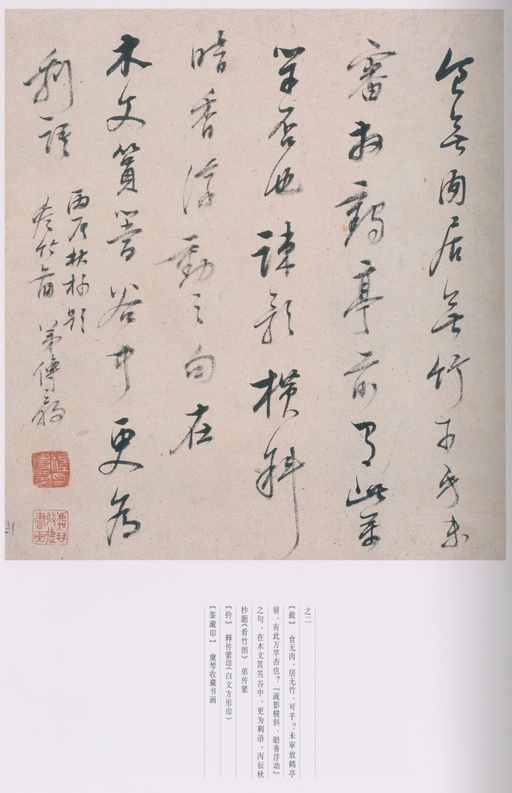 食無肉居無竹可乎未
審放鶴亭前有此萬
竿否也疎影橫斜
暗香浮動之句在
木文篔簹谷中更為
剩語
丙辰秋杪題
看竹圖 弟傳綮
之二
【跋】 食无肉,居无竹,可乎?未审放鹤亭
前,有此万竿否也?『疏影横斜,暗香浮动』
之句,在木文筼筜谷中,更为剩语。丙辰秋
杪题《看竹图》 弟传綮
【钤】 释传綮印(白文方形印)
【鉴藏印】 虞琴收藏书画